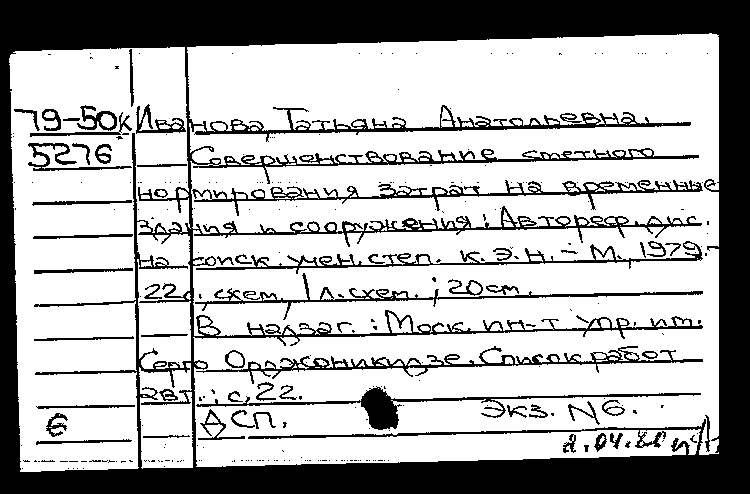 79-50к Иванова, Татьяна Анатольевна.
5276 Совершенствование сметного
нормирования затрат на временные
здания и сооружения: Автореф. дис.
на соиск. учен. степ. к.э.н. - М., 1979.-
22с. схем., 1 л. схем.; 20см.
В надзаг.: Моск. ин-т упр. им.
Серго Орджоникидзе. Список работ
авт.: с. 22.
6 ДСП. Экз. N6.
2.04.80